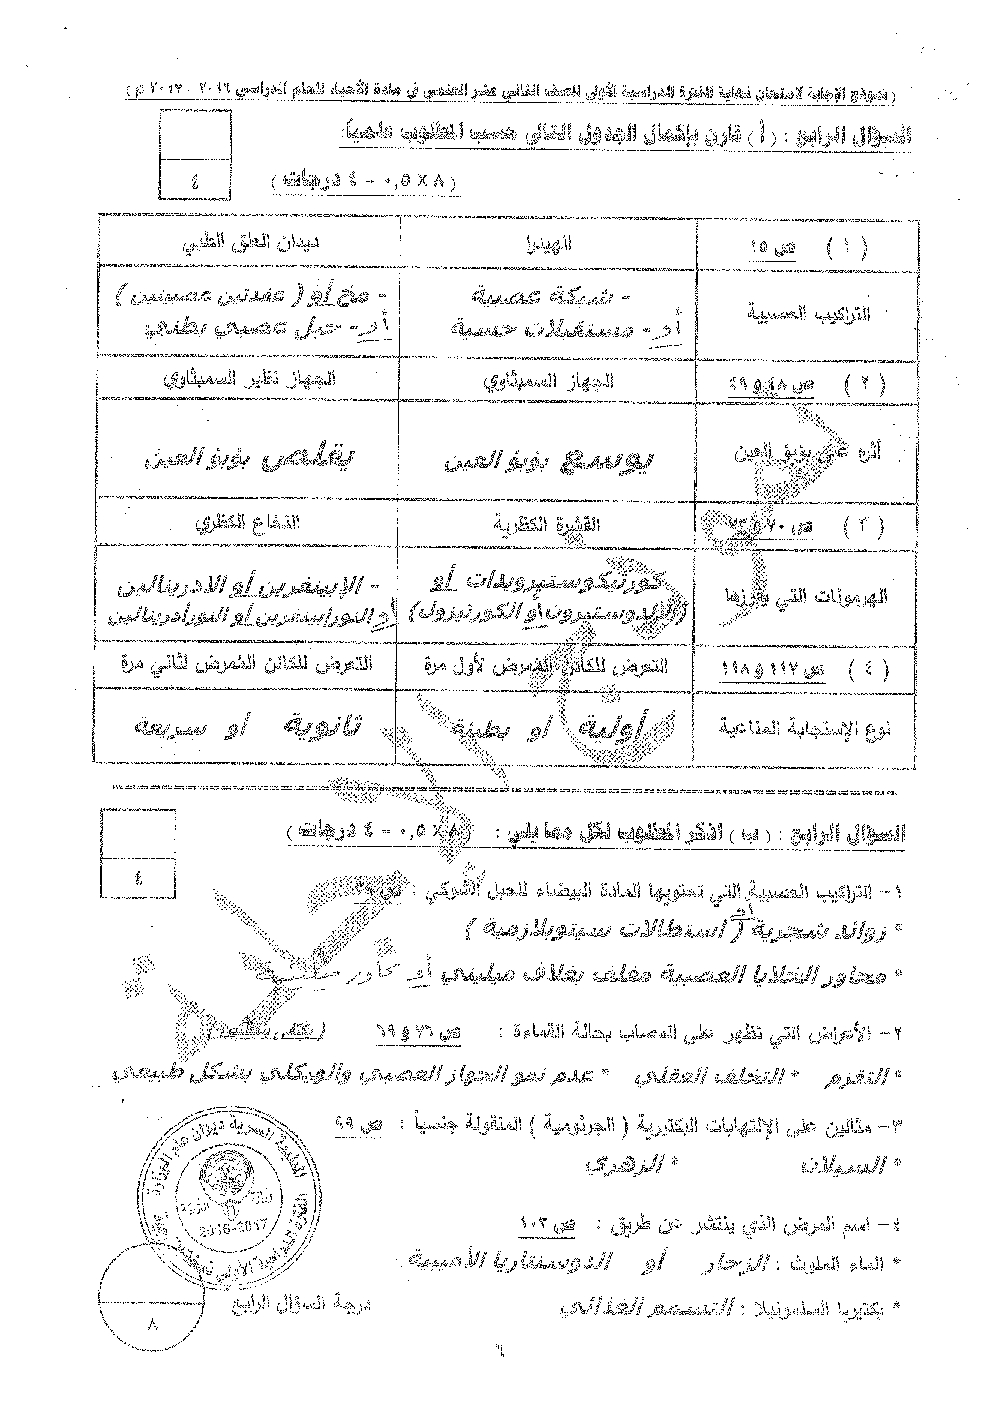 ( نموذج الإجابة لامتحان نهاية الفترة الدراسية الأولى للصف الثاني عشر العلمي في مادة الأحياء للعام الدراسي ٢٠١٦ - ٢٠١٧ م )
السؤال الرابع : ( أ ) قارن بإكمال الجدول التالي حسب المطلوب علمياً:
( ٨ × ٠,٥ = ٤ درجات )
٤
( ١ ) ص ١٥ الهيدرا ديدان العلق الطبي
التراكيب العصبية - شبكة عصبية - مخ أو ( عقدتين عصبيتين )
أو - مستقبلات حسية أو - حبل عصبي بطني
( ٢ ) ص ٤٨ و ٤٩ الجهاز السمبثاوي الجهاز نظير السمبثاوي
أثره على بؤبؤ العين يوسع بؤبؤ العين يقلص بؤبؤ العين
( ٣ ) ص ٧٠ القشرة الكظرية النخاع الكظري
الهرمونات التي تفرزها كورتيكوستيرويدات أو - الإبينفرين أو الادرينالين
(الألدوستيرون أو الكورتيزول) أو النورابينفرين أو النورأدرينالين
( ٤ ) ص ١١٧ و ١١٨ التعرض للكائن الممرض لأول مرة التعرض للكائن الممرض لثاني مرة
نوع الإستجابة المناعية أولية أو بطيئة ثانوية أو سريعة
السؤال الرابع : ( ب ) اذكر المطلوب لكل مما يلي : ( ٨ × ٠,٥ = ٤ درجات )
٤
١- التراكيب العصبية التي تحتويها المادة البيضاء للحبل الشوكي :
* زوائد شجرية أو ( استطالات سيتوبلازمية )
* محاور الخلايا العصبية مغلف بغلاف ميليني أو محاور
٢- الأعراض التي تظهر على المصاب بحالة القماءة : ص ٧٦ و ٦٩
* التقزم * التخلف العقلي * عدم نمو الجهاز العصبي والهيكلي بشكل طبيعي
٣- مثالين على الإلتهابات البكتيرية ( الجرثومية ) المنقولة جنسياً : ص ٤٩
* السيلان * الزهري
٤- اسم المرض الذي ينتشر عن طريق : ص ١٠٣
* الماء الملوث : الزحار أو الدوسنتاريا الأميبية
* بكتيريا السلمونيلا : التسمم الغذائي
2016-2017
درجة السؤال الرابع
٨
٦